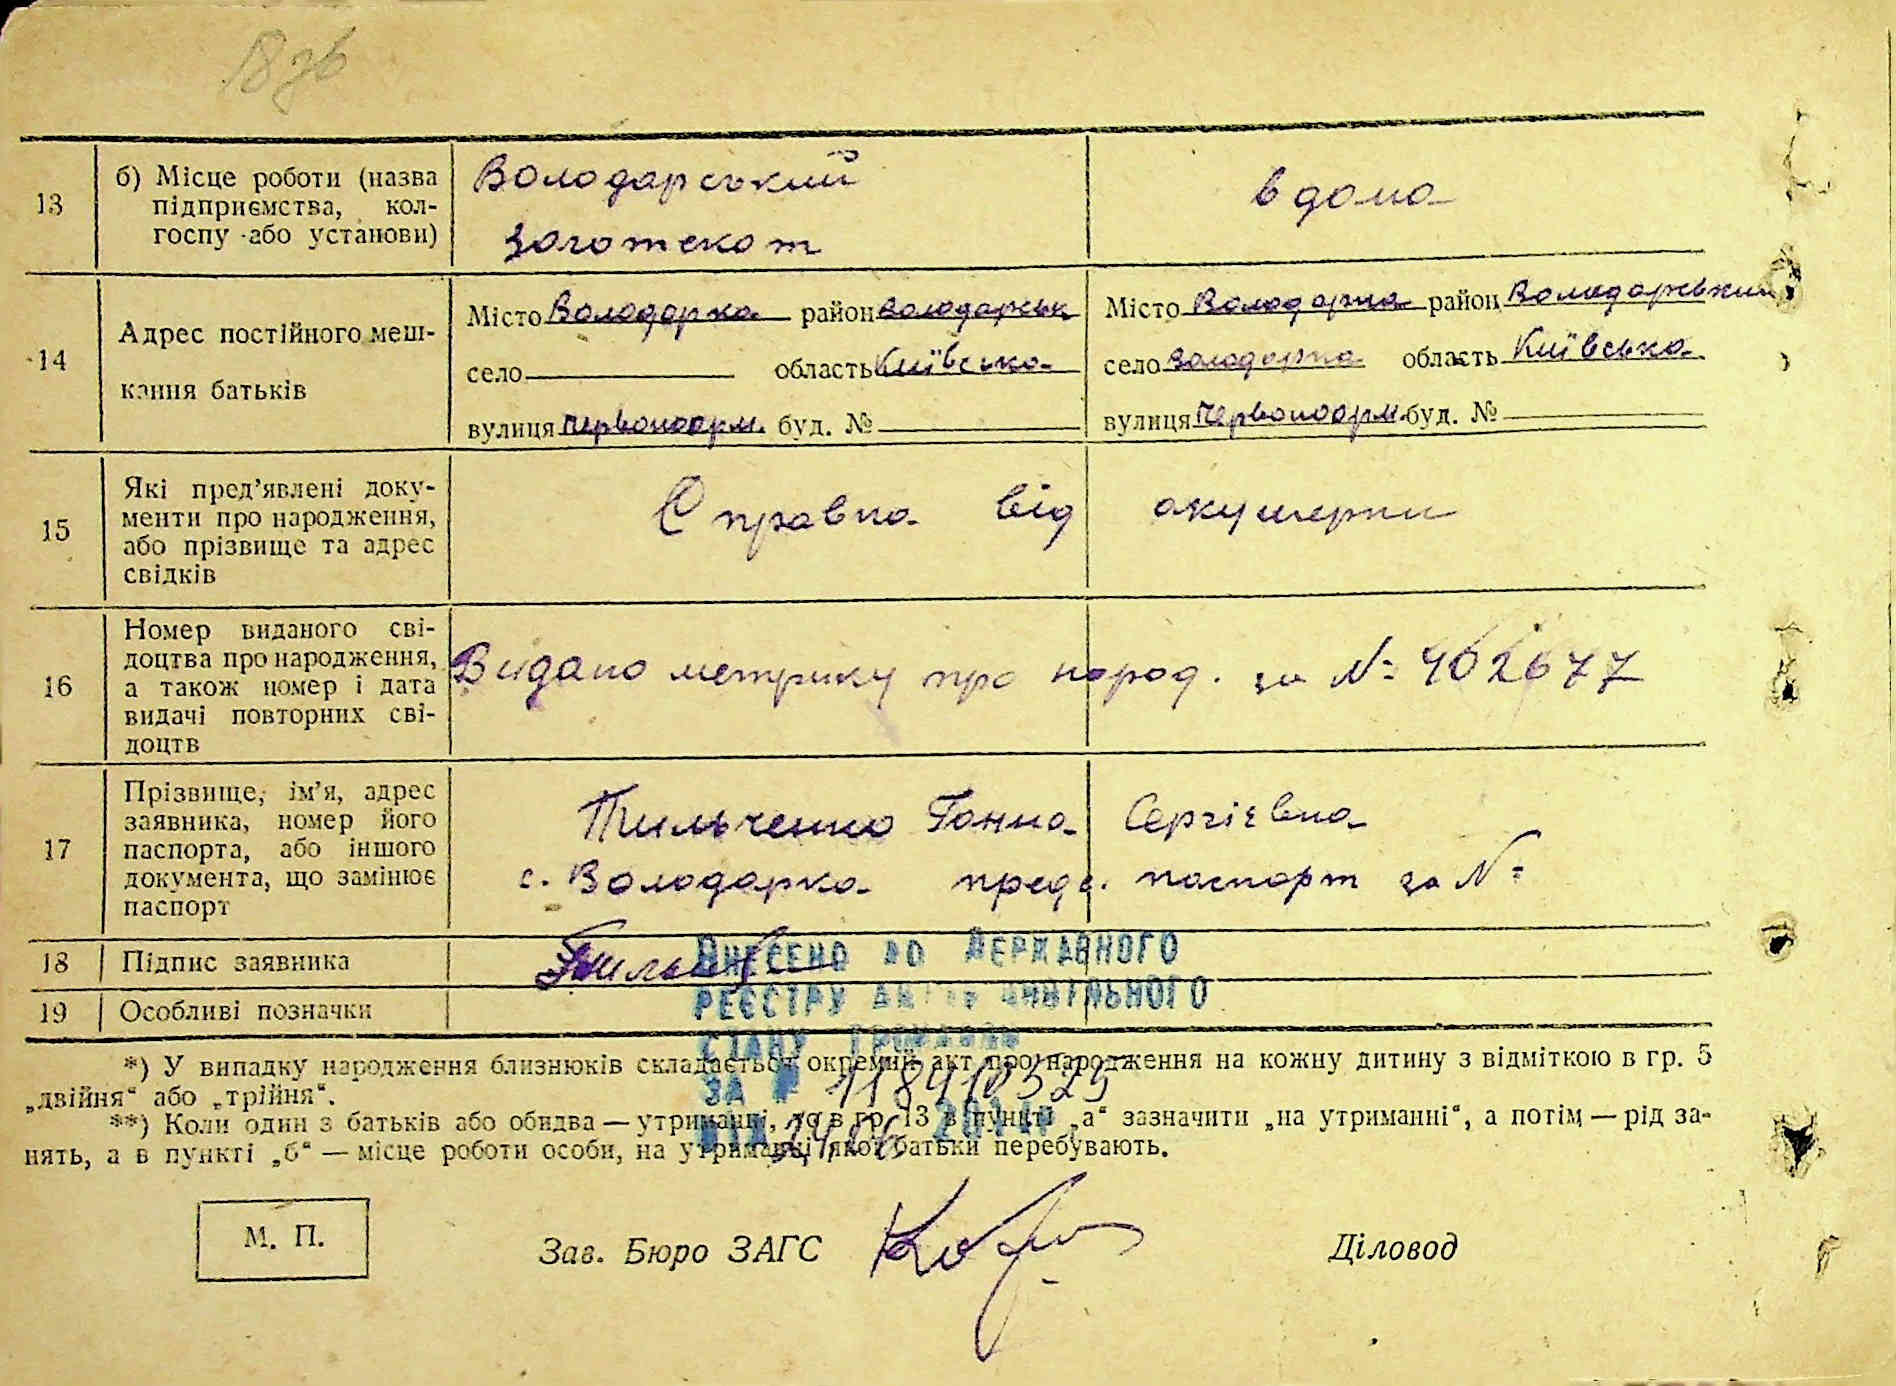 13
б) Місце роботи (назва
підприємства, кол-
госпу або установи)
Володарський
Заготскот
вдома
14
Адрес постійного меш-
кання батьків
Місто Володарка район Володарськ
село область Київська
вулиця Червоноарм. буд. №
Місто Володарка район Володарський
село Володарка область Київська
вулиця Червоноарм. буд. №
15
Які пред’явлені доку-
менти про народження,
або прізвище та адрес
свідків
Справка від акушерки
16
Номер виданого сві-
доцтва про народження,
а також номер і дата
видачі повторних сві-
доцтв
Видано метрику про народ. за № 402677
17
Прізвище, ім’я, адрес
заявника, номер його
паспорта, або іншого
документа, що замінює
паспорт
Тильченко Ганна Сергієвна
с. Володарка пред. паспорт за №
18
Підпис заявника
19
Особливі позначки
Внесено до Державного
реєстру актів цивільного
стану громадян
за №
*) У випадку народження близнюків складається окремий акт про народження на кожну дитину з відміткою в гр. 5
„двійня“ або „трійня“.
**) Коли один з батьків або обидва — утриманці, то в гр. 13 в пункті „а“ зазначити „на утриманні“, а потім — рід за-
нять, а в пункті „б“ — місце роботи особи, на утриманці якої батьки перебувають.
М. П.
Зав. Бюро ЗАГС
Діловод